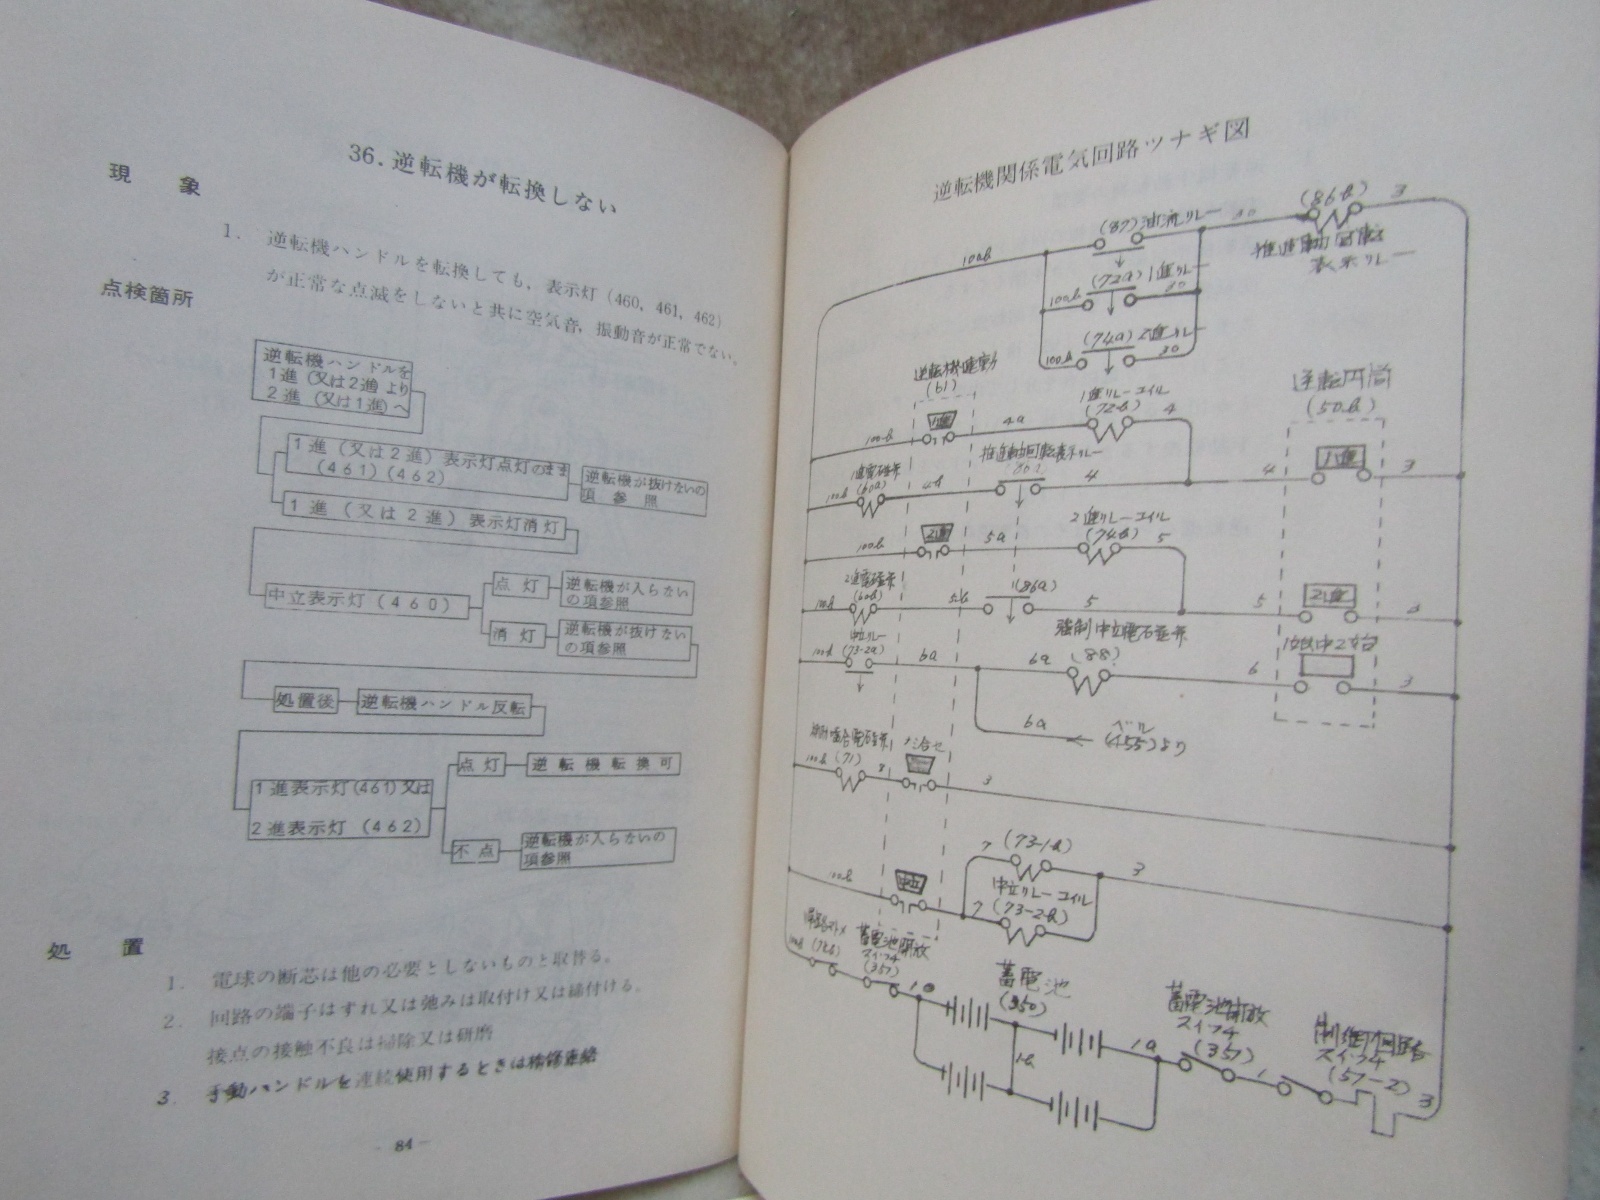 36. 逆転機が転換しない
現 象
1. 逆転機ハンドルを転換しても, 表示灯 (460, 461, 462)
が正常な点滅をしないと共に空気音, 振動音が正常でない。
点検箇所
逆転機ハンドルを
1進 (又は2進) より
2進 (又は1進) へ
1進 (又は2進) 表示灯点灯のまま
(461) (462)
逆転機が抜けないの
項参照
1進 (又は2進) 表示灯消灯
中立表示灯 (460)
点灯
逆転機が入らない
の項参照
消灯
逆転機が抜けない
の項参照
処置後
逆転機ハンドル反転
1進表示灯(461)又は
2進表示灯 (462)
点灯
逆転機転換可
不点
逆転機が入らないの
項参照
処 置
1. 電球の断芯は他の必要としないものと取替る。
2. 回路の端子はずれ又は弛みは取付け又は締付ける。
接点の接触不良は掃除又は研磨
3. 手動ハンドルを連続使用するときは検修連絡
- 84 -
逆転機関係電気回路ツナギ図
(87) 油流リレー
30
(86b)
3
推進軸回転
表示リレー
100b
(72a) 1進リレー
100b
30
(74a) 2進リレー
100b
30
(61)
1進
100b
4a
1進リレーコイル
(72b)
4
逆転円筒
(50b)
1進電磁弁
(60a)
100b
4b
推進軸回転表示リレー
4
4
1進
3
2進
100b
5a
2進リレーコイル
(74b)
5
2進電磁弁
(60b)
100b
5b
(86a)
5
5
2進
3
中立リレー
(73-2a)
100b
6a
6a
強制中立電磁弁
(88)
6
3
6a
ベル
(455)より
(71)
100b
8
3
100b
中立
7
(73-1b)
中立リレーコイル
7
(73-2b)
3
100b
蓄電池開放
スイッチ
(357)
10
蓄電池
(350)
1b
1a
蓄電池開放
スイッチ
(357)
1
制御回路
スイッチ
(57-2)
3